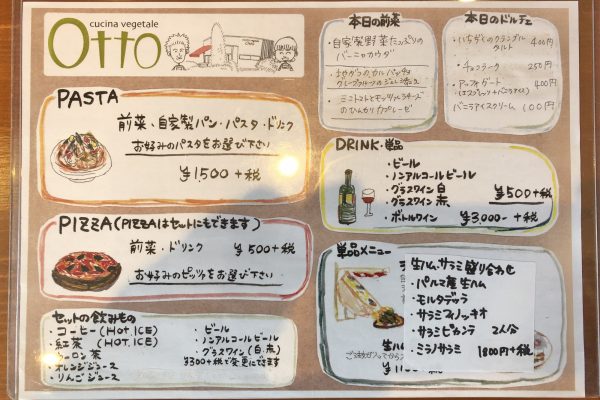 cucina vegetale
Otto
PASTA
前菜、自家製パン・パスタ・ドリンク
お好みのパスタをお選び下さい
¥1,500+税
PIZZA(PIZZAはセットにもできます)
前菜・ドリンク ¥500+税
お好みのピッツァをお選び下さい
セットの飲みもの
・コーヒー(HOT.ICE)
・紅茶(HOT.ICE)
・ウーロン茶
・オレンジジュース
・りんごジュース
・ビール
・ノンアルコールビール
・グラスワイン(白.赤)
¥300+税で変更にできます
本日の前菜
・自家製野菜たっぷりの
バーニャカウダ
・ミニトマトとモッツァレラチーズ
のひんやりカプレーゼ
本日のドルチェ
・いちぢくのクランブル
タルト 400円
・チョコラータ 250円
・アッフォガート 400円
バニラアイスクリーム 100円
DRINK・単品
・ビール
・ノンアルコールビール
・グラスワイン 白
・グラスワイン 赤 ¥500+税
・ボトルワイン ¥3,000-+税
単品メニュー
生ハム、サラミ盛り合わせ
・パルマ産生ハム
・モルタデッラ
・サラミフィノッキオ
・サラミピカンテ 2人分
・ミラノサラミ 1800円+税
生ハ